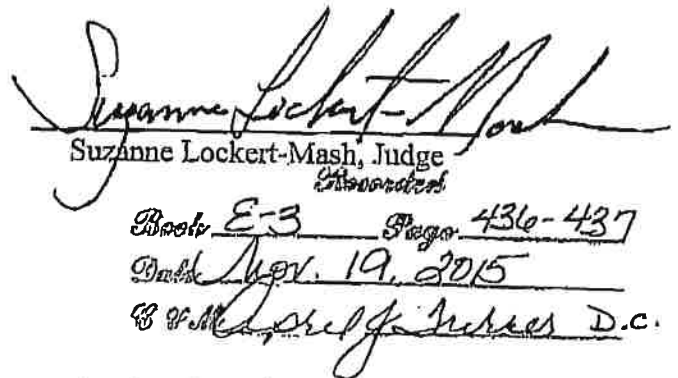 Suzanne Lockert-Mash
Suzanne Lockert-Mash, Judge
Recorded
Book E-3 Page 436-437
Date Nov. 19, 2015
C & M D.C.